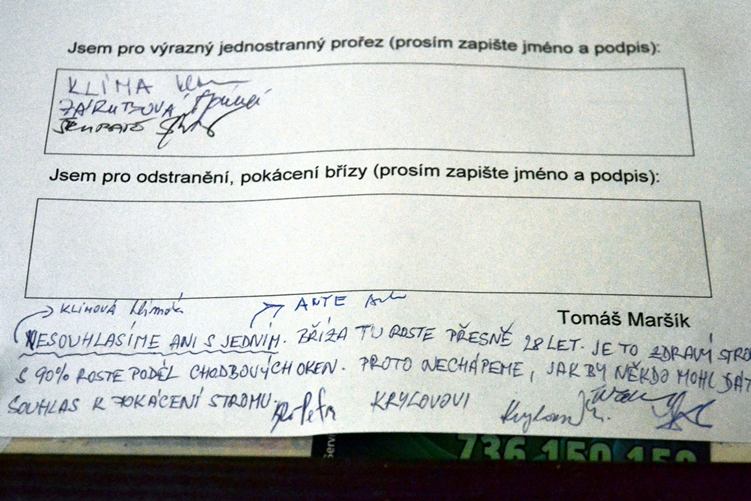 Jsem pro výrazný jednostranný prořez (prosím zapište jméno a podpis):
KLÍMA
Jsem pro odstranění, pokácení břízy (prosím zapište jméno a podpis):
KLIMOVÁ
ANTE
Tomáš Maršík
NESOUHLASÍME ANI S JEDNÍM. BŘÍZA TU ROSTE PŘESNĚ 28 LET. JE TO ZDRAVÝ STRO
S 90% ROSTE PODÉL CHODBOVÝCH OKEN. PROTO NECHÁPEME, JAK BY NĚKDO MOHL DÁT
SOUHLAS K POKÁCENÍ STROMU. KRYLOVOVI
Serv
736 150 150